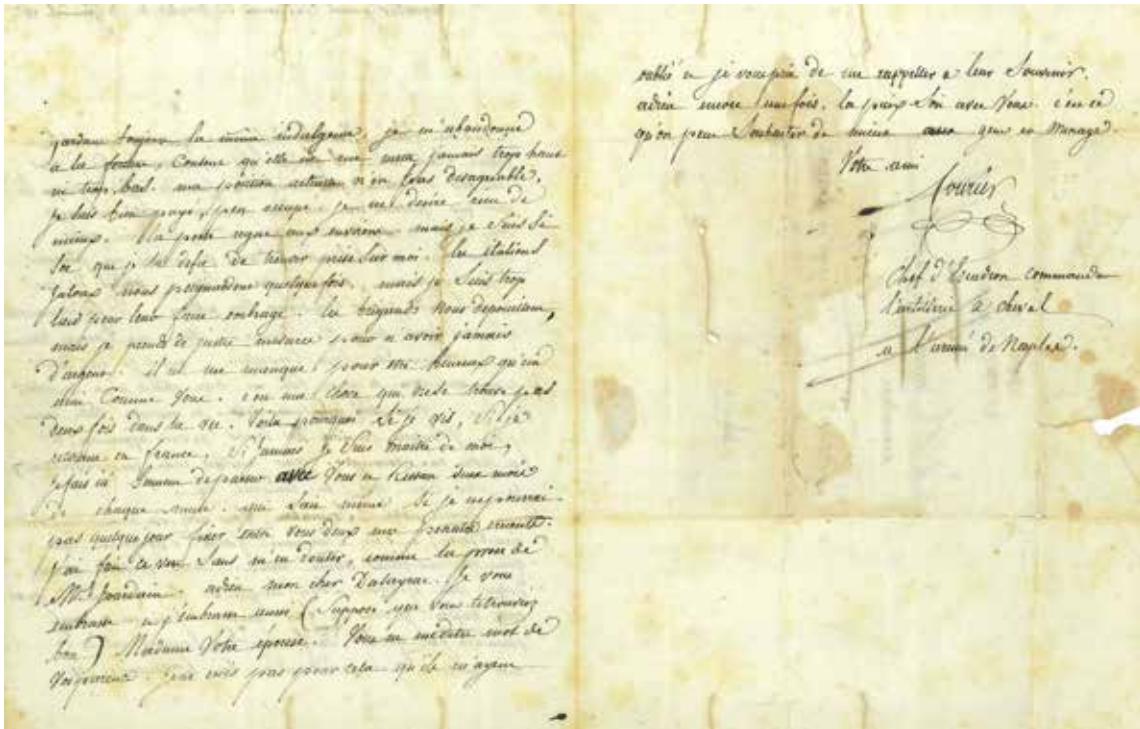 gardant toujours la même indulgence. je m'abandonne
a la fortune, Content qu'elle ne me mette jamais trop haut
ni trop bas. ma position actuelle n'est pas desagreable.
je suis bien payé, peu occupé. je ne desire rien de
mieux. la peste regne aux environs. mais je suis si
sec que je la defie de trouver prise sur moi. les italiens
jaloux nous poignardent quelquefois, mais je suis trop
laid pour leur faire ombrage. les brigands nous depouillent,
mais je prends de justes mesures pour n'avoir jamais
d'argent. il ne me manque pour etre heureux qu'un
ami Comme Vous. c'est une chose qui ne se trouve pas
deux fois dans la vie. Voila pourquoi si je vis, si je
retourne en france, si jamais je suis maitre de moi,
je fais ici de passer avec Vous
de chaque année. qui sait même si je ne pourrai
pas quelque jour fixer entre vous deux ma
j'ai fait ce vers sans m'en douter, comme la prose de
Mr. Jourdain. adieu mon cher Dalayrac. Je vous
embrasse et j'embrasse aussi (Supposé que vous le trouviez
bon) Madame Votre épouse. Vous ne me dites mot de
Vos parents. je ne crois pas pour cela qu'ils m'ayent
oublié et je vous prie de me rappeller a leur Souvenir.
adieu encore une fois. la paix soit avec Vous. c'est ce
qu'on peut Souhaiter de mieux aux gens en Menage.
Votre ami
Courier
Chef d'Escadron commandant
l'artillerie a cheval
a l'armée de Naples.